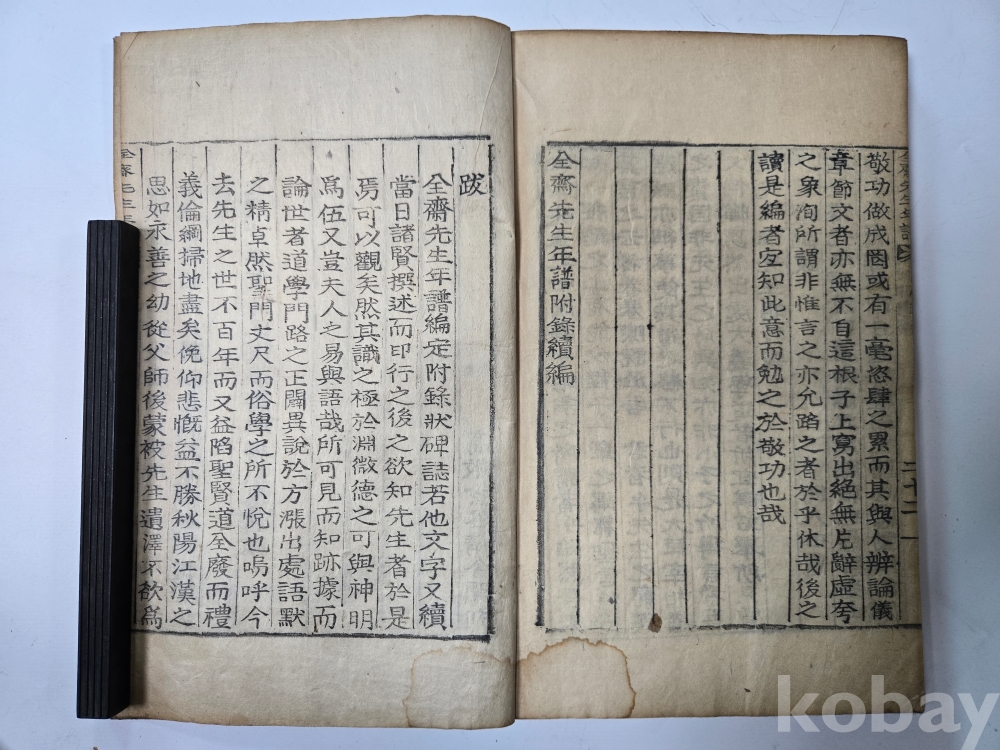 敬功做成圈或有一毫恣肆之累而其與人辨論儀
章節文者亦無不自這根子上寫出絕無片辭虛夸
之象洵所謂非惟言之亦允蹈之者於乎休哉後之
讀是編者宜知此意而勉之於敬功也哉
全齋先生年譜附錄續編
跋
全齋先生年譜編定附錄狀碑誌若他文字又續
當日諸賢撰述而印行之後之欲知先生者於是
焉可以觀矣然其識之極於淵微德之可與神明
爲伍又豈夫人之易與語哉所可見而知跡據而
論世者道學門路之正闢異說於方漲出處語默
之精卓然聖門丈尺而俗學之所不悅也嗚呼今
去先生之世不百年而又益陷聖賢道全廢而禮
義倫綱掃地盡矣俛仰悲慨益不勝秋陽江漢之
思如永善之幼從父師後蒙被先生遺澤不欲爲
全齋先生年
kobay